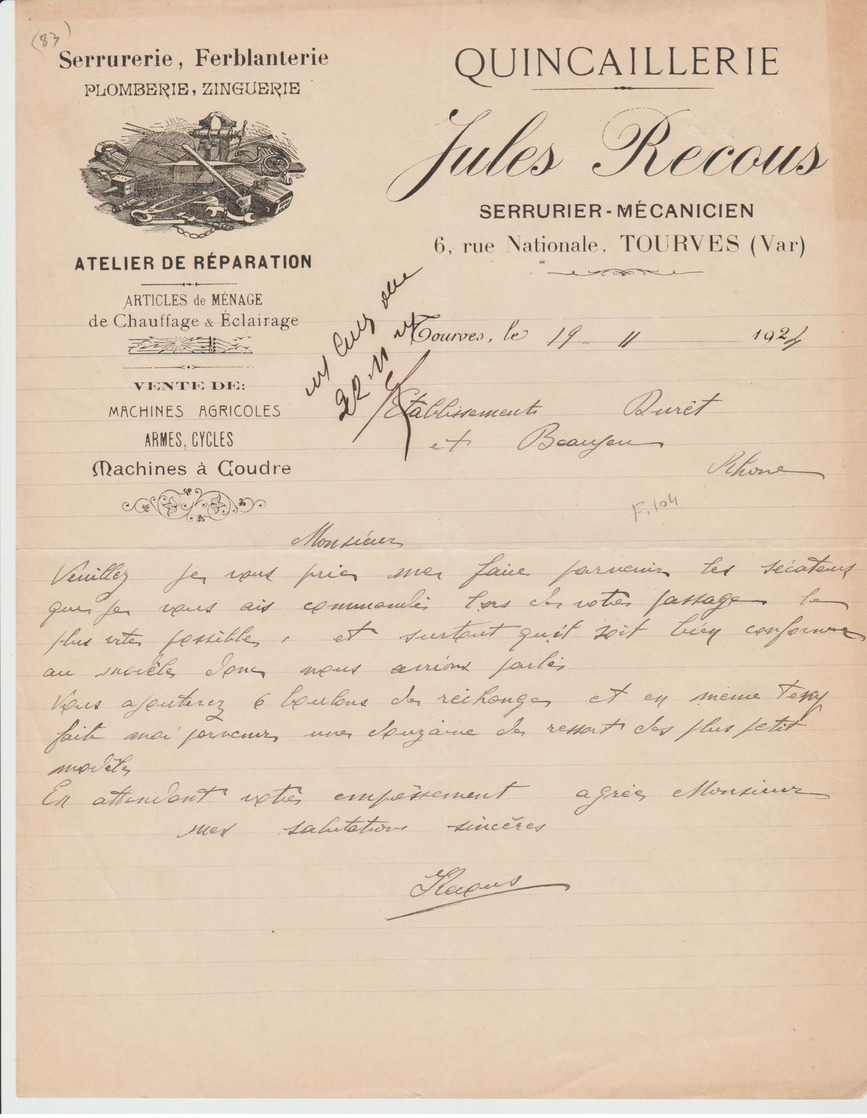 (83)
Serrurerie, Ferblanterie
PLOMBERIE, ZINGUERIE
ATELIER DE RÉPARATION
ARTICLES de MÉNAGE
de Chauffage & Éclairage
VENTE DE:
MACHINES AGRICOLES
ARMES, CYCLES
Machines à Coudre
QUINCAILLERIE
Jules Recous
SERRURIER-MÉCANICIEN
6, rue Nationale, TOURVES (Var)
22-11
Tourves, le 19 - 11 1924
Etablissements Duret
et Beaujeu
Rhone
F. 104
Monsieur
Veuillez je vous prie me faire parvenir les sécateurs
que je vous ais commandés lors de votre passage le
plus vite possible, et surtout qu'il soit bien conforme
au modèle dont nous avions parlés
Vous ajouterez 6 boulons de rechange et en même temps
faite moi parvenir une douzaine de ressort des plus petit
modèle
En attendant votre empèssement agrée Monsieur
mes salutations sincères
JRecous